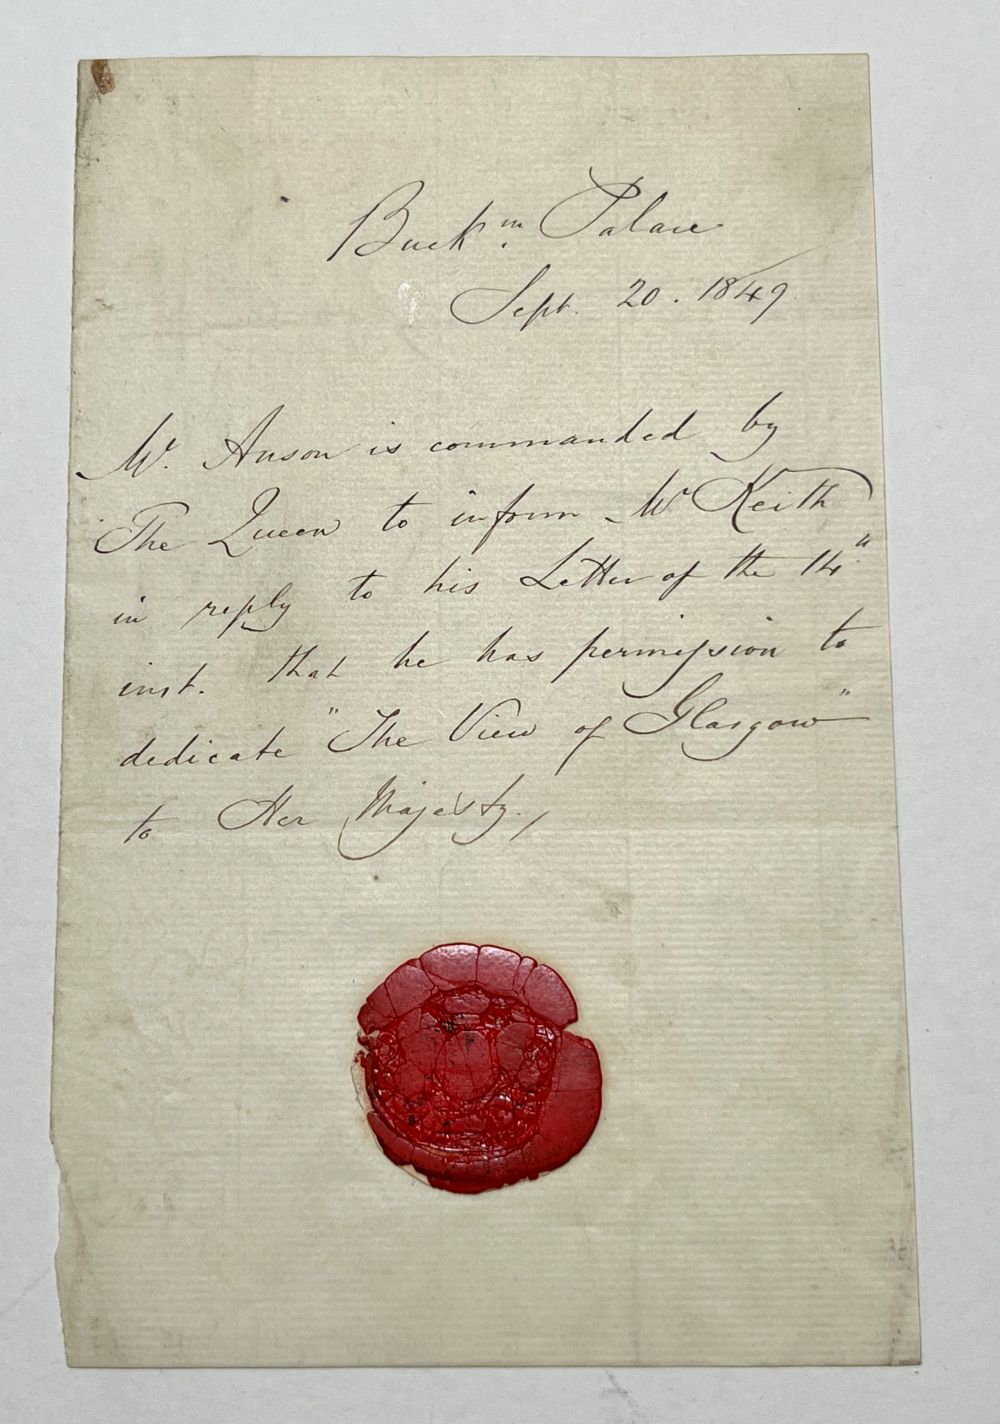 Buckm. Palace
Sept. 20. 1849
Mr. Anson is commanded by
The Queen to inform Mr Keith
in reply to his Letter of the 14"
inst. that he has permission to
dedicate "The View of Glasgow"
to Her Majesty.,